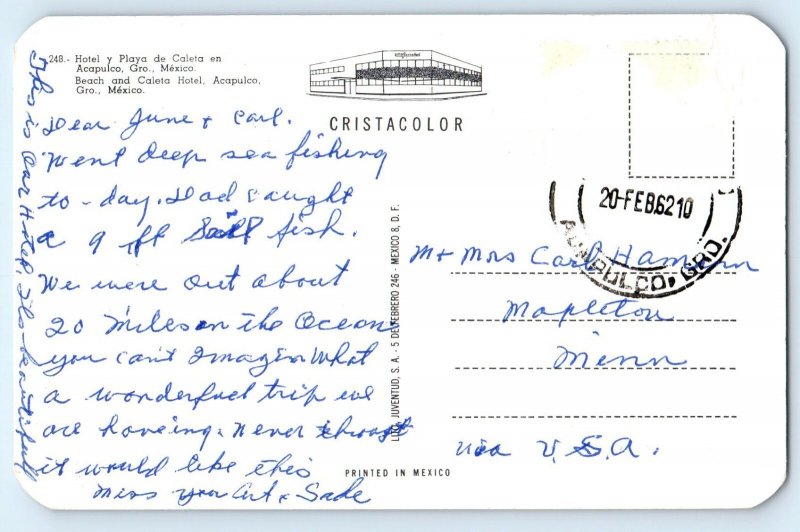 248.- Hotel y Playa de Caleta en
Acapulco, Gro., México.
Beach and Caleta Hotel, Acapulco,
Gro., México.
CRISTACOLOR
Dear June & Carl.
Went deep sea fishing
to-day. Dad caught
a 9 ft Sail fish.
We were out about
20 Miles on the Ocean
you can't Imagin What
a wonderful trip we
are haveing. Never thought
it would like this
Miss you Art & Sade
This is Our Hotel Its beautifull
LUNA JUVENTUD, S. A. - 5 DE FEBRERO 246 - MEXICO 8, D. F.
PRINTED IN MEXICO
20-FEB.62 10
ACAPULCO, GRO.
Mr Mrs Carl Hamann
Mapleton
Minn
via U.S.A.